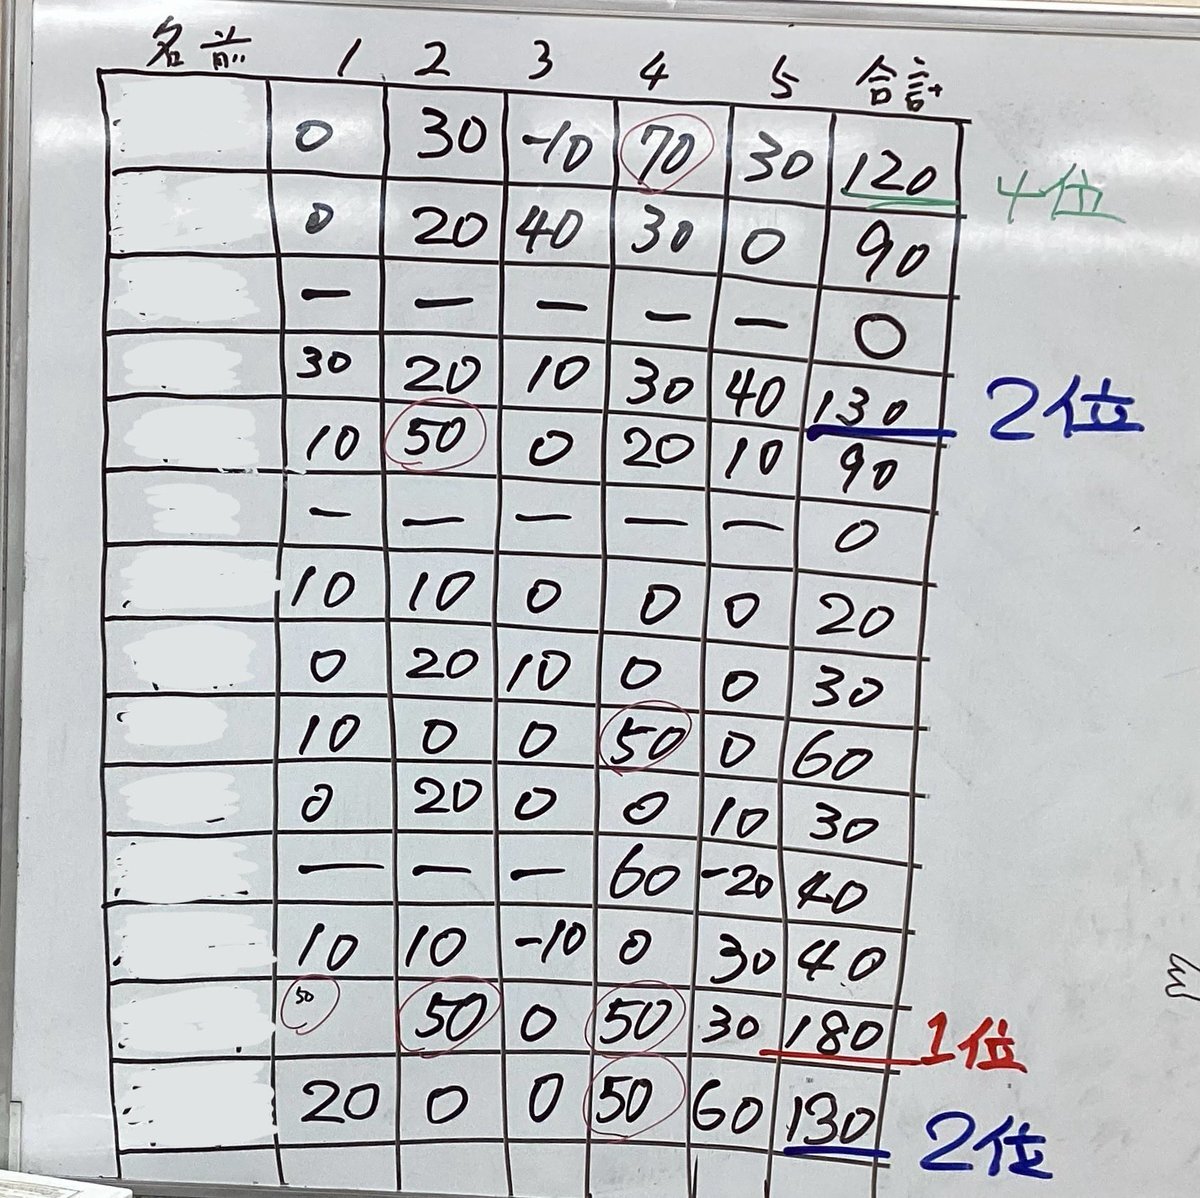 名前 1 2 3 4 5 合計
0 30 -10 70 30 120 4位
0 20 40 30 0 90
— — — — — 0
30 20 10 30 40 130 2位
10 50 0 20 10 90
— — — — — 0
10 10 0 0 0 20
0 20 10 0 0 30
10 0 0 50 0 60
0 20 0 0 10 30
— — — 60 -20 40
10 10 -10 0 30 40
50 50 0 50 30 180 1位
20 0 0 50 60 130 2位